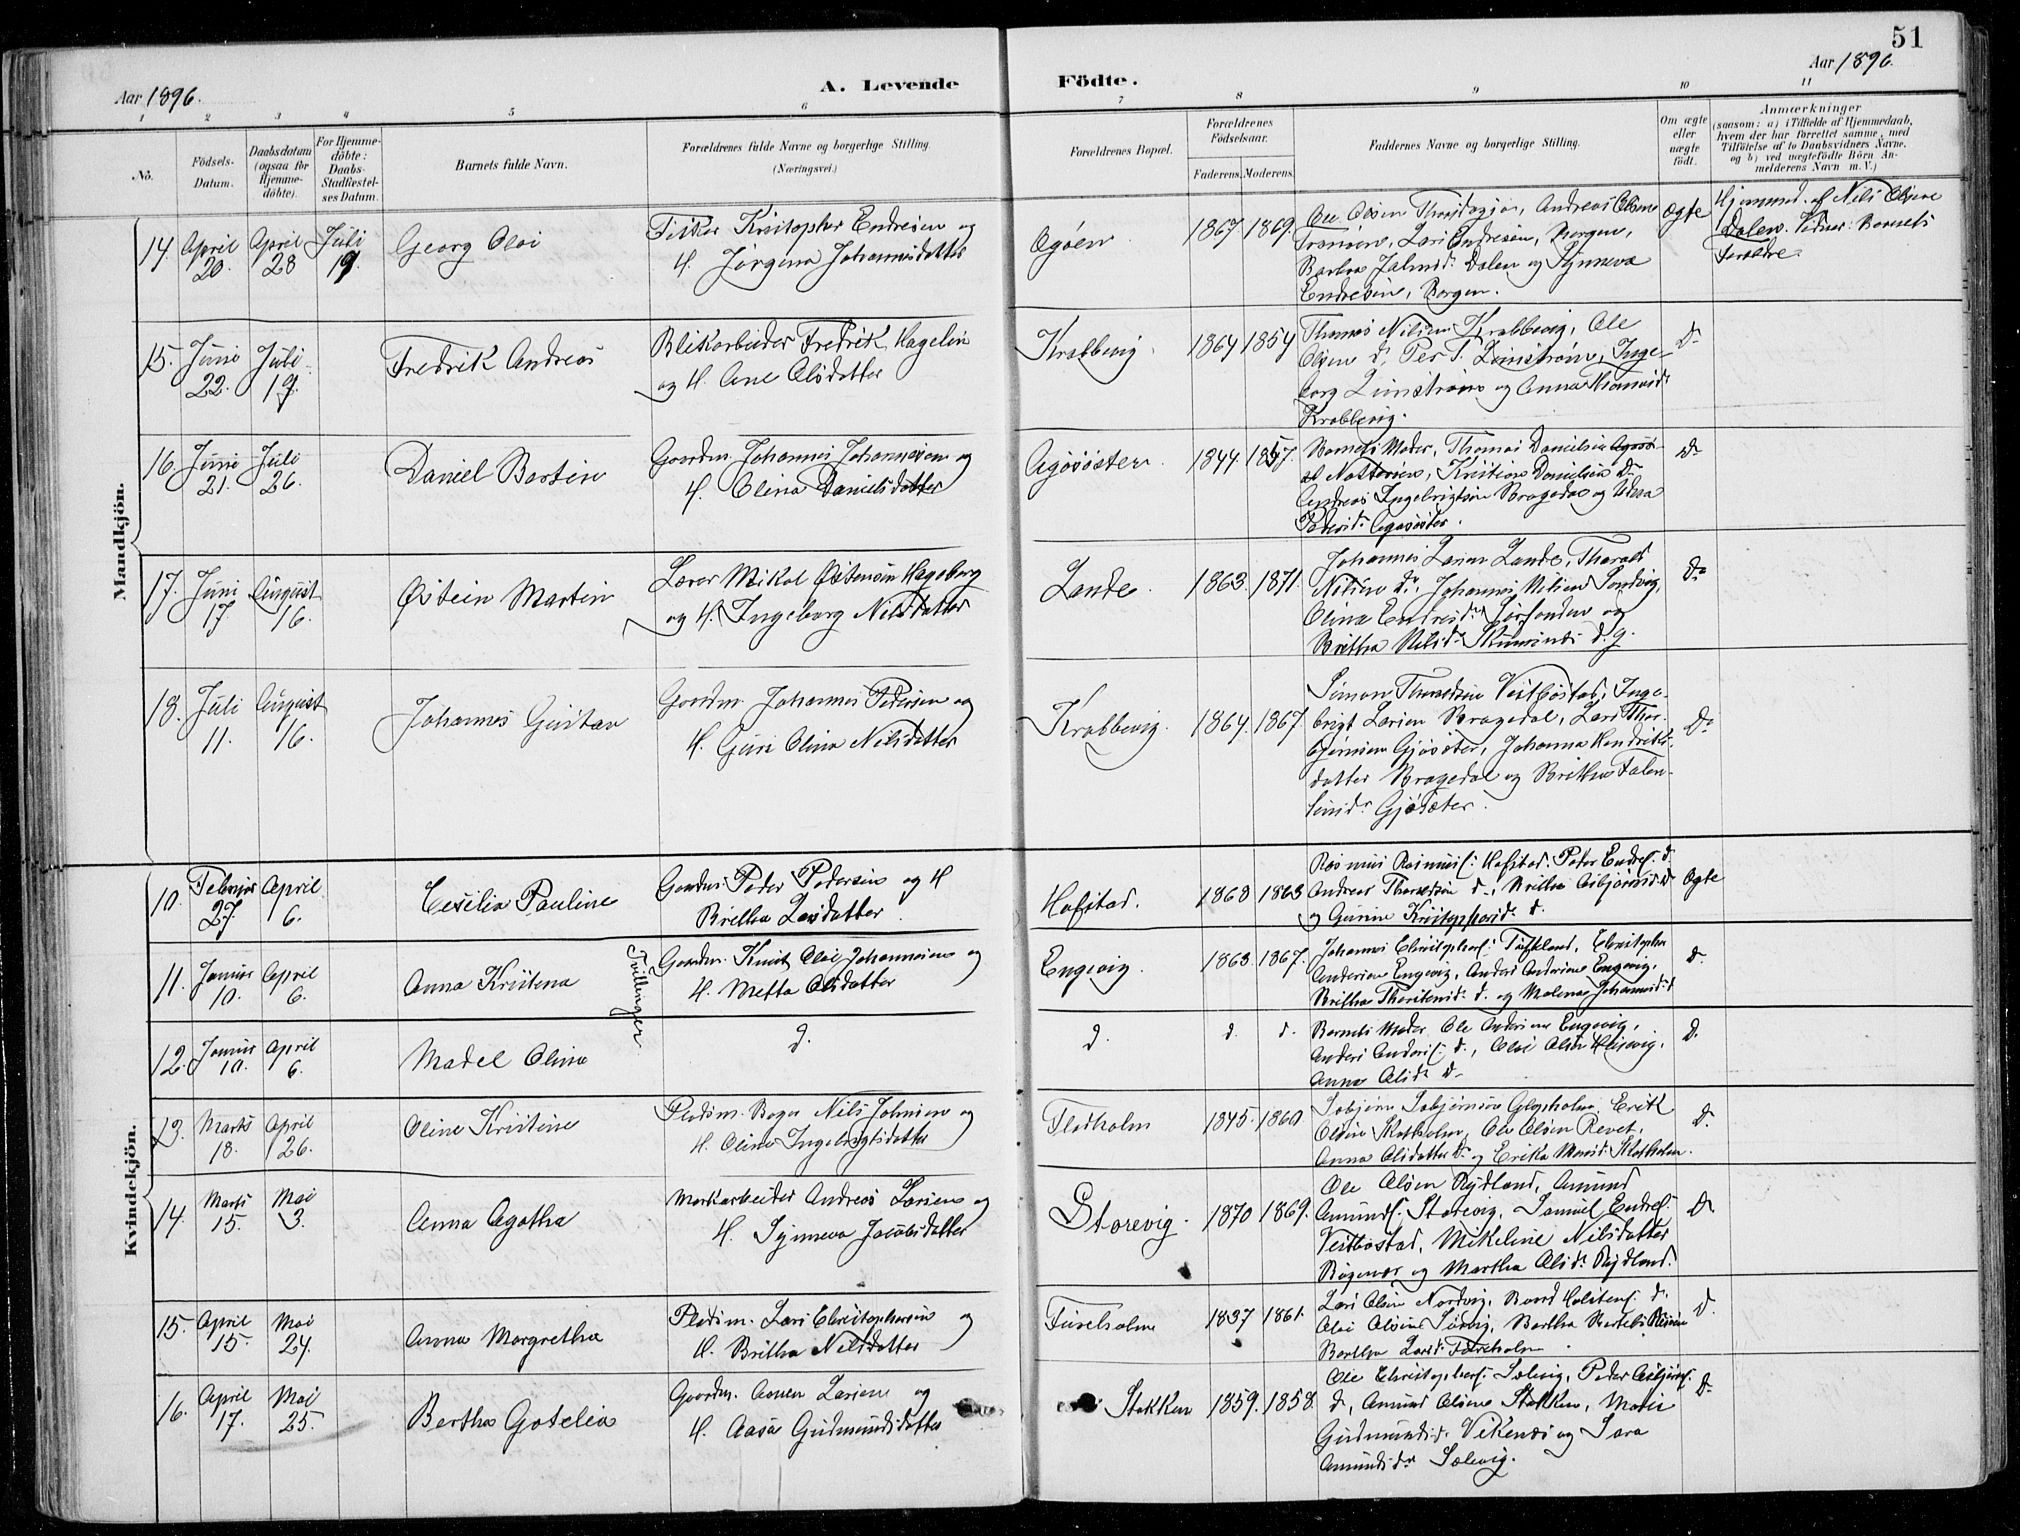 51
Aar 1896.
A. Levende
Födte.
Aar 1896.
1 2 3 4 5 6 7 8 9 10 11
No.
Födsels-
Datum.
Daabsdatum
(ogsaa for
Hjemme-
döbte).
For Hjemme-
döbte:
Daabs-
Stadfæstel-
ses Datum.
Barnets fulde Navn.
Forældrenes fulde Navne og borgerlige Stilling.
(Næringsvei.)
Forældrenes Bopæl.
Forældrenes
Födselsaar.
Faderens. Moderens.
Faddernes Navne og borgerlige Stilling.
Om ægte
eller
uægte
födt.
Anmærkninger
(saasom: a) i Tilfælde af Hjemmedaab,
hvem der har forrettet samme, med
Tilföielse af to Daabsvidners Navne,
og b) ved uægtefödte Börn An-
melderens Navn m. V.)
Mandkjön.
14. April 20. April 28 Juli 19. Georg Olai
Fisker Kristopher Endresen og
H. Jørgina Johannesdatter
Agøen 1867 1869.
Andreas Olsen
Lars Endresen, Borgen,
Dalen og Synneva
Endresen, Borgen.
Ægte
Hjemmed. af Nils Olsen
Dalen. Vidner: Barnets
Forældre.
15. Juni 22. Juli 19. Fredrik Andreas
Blikarbeider Fredrik Hagelin
og H. Ane Olsdatter
Krabbevig. 1864 1854
Thomas Nilsen Krabbevig, Ole
Olsen d: Per T. Linstrøm, Inge-
borg Linstrøm og Anna Thomasd:
Krabbevig.
Do
16. Juni 21. Juli 26. Daniel Bastin
Gaardm. Johannes Johannesen og
H. Olina Danielsdatter
Agøsøster. 1844. 1857.
Barnets Moder, Thomas Danielsen
Kristian Danielsen Do
Andreas Ingebrigtsen Bragedal og
Pedersdr Agasøster.
Do
17. Juni 17. August 16. Østein Martin
Lærer Mikal Østensen Hageberg
og H. Ingeborg Nilsdatter
Lande. 1863. 1871.
Johannes Larsen Lande, Tharald
Nilsen dr, Johannes Nilsen Sandvig,
Olina Endresdr og
Britha Nilsdr d. g.
Do
18. Juli 11. August 16. Johannes Gustav
Gaardm. Johannes Pedersen og
H. Guri Olina Nilsdatter
Krabbevig. 1864. 1867.
Simon Tharaldsen Vestbøstad, Inge-
brigt Larsen Bragedal, Lars Thor-
bjørnsen Gjøsæter, Johanna Hendriks-
datter Bragedal og Britha Falen-
tinsdr Gjøsæter.
Do
Kvindekjön.
10. Februar 27. April 6. Cecilia Pauline
Gaardm. Peder Pedersen og H
Britha Larsdatter.
Hofstad. 1863 1863
Rasmus Rasmus: Hofstad. Peder Endres: d.
Andreas Tharaldsen d., Britha Asbjørnsd. d
og Gurine Kristophersd: d.
Ægte
11. Januar 10. April 6. Anna Kristina
Tvillinger
Gaardm. Knut Olai Johannesen og
H. Metta Olsdatter
Engevig. 1863. 1867.
Johannes Christophers: Christopher
Andersen Engevig, Anders Andersen Engevig,
Britha d. og Malena Johannesd: d
d.
12. Januar 10. April 6. Madel Olina
d.
d. d. d.
Barnets Moder, Ole Andersen Engevig,
Anders Anders: d., Olai Olsen
Anna Olsd: d.
d.
13. Marts 18. April 26. Oline Kristine
Pladsm. Nils Johnsen og
H. Oline Ingebrigtsdatter
Fladholm 1845. 1860
Erik
Olsen Ole Olsen Revet,
Anna Olsdatter Do og Erika
d.
14. Marts 15. Mai 3. Anna Agatha
Markarbeider Andreas Larsen og
H. Synneva Jacobsdatter
Storevig. 1870 1869.
Ole Olsen Rydland, Amund
Amunds: Storevig, Samuel Endres:
Vestbøstad, Mikeline Nilsdatter
Bøgenæs og Martha Olsdr Rydland.
d.
15. April 15. Mai 24. Anna Margretha
Pladsm. Lars Christophersen og
H. Britha Nilsdatter
Fureholm 1837 1861.
Lars Olsen Nordvig, Baard d.
Olai Olsen Bertha
Bertha Larsd: Fureholm.
d.
16. April 17. Mai 25. Bertha Gotelia
Gaardm. Larsen og
H. Aasa Gudmundsdatter
Stakken 1859. 1858.
Ole Christophers: Sælevig, Peder Asbjørns:
d, Amund Olsen Stakken, Mari
Gudmundsd: Vikenes og Sara
Amundsdr Sælevig.
Do